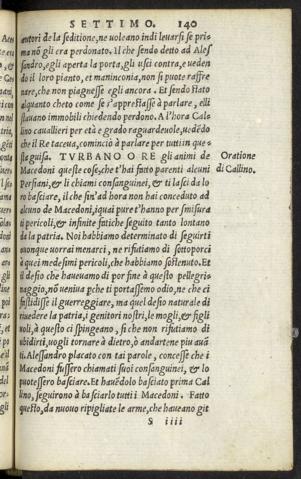 SETTIMO. 140
autori de la seditione, ne uoleano indi leuarsi se pri-
ma nõ gli era perdonato. Il che sendo detto ad Ales
sandro, egli aperta la porta, gli uscì contra, e ueden
do il loro pianto, et maninconia, non si puote raffre
nare, che non piagnesse egli ancora. Et sendo stato
alquanto cheto come se s'apprestasse à parlare, elli
stauano immobili chiedendo perdono. A l'hora Cal-
lino cauallieri per età e grado raguardeuole, uedẽdo
che il Re taceua, cominciò à parlare per tutti in que-
sta guisa. TVRBANO O RE gli animi de
Macedoni queste cose, che t'hai fatto parenti alcuni
Persiani, & li chiami consanguinei, & ti lasci da lo
ro basciare, il che fin'ad hora non hai conceduto ad
alcuno de Macedoni, iquai pure t'hanno per smisura
ti pericoli, & infinite fatiche seguito tanto lontano
da la patria. Noi habbiamo determinato di seguirti
ounque uorrai menarci, ne rifiutiamo di sottoporci
à quei medesimi pericoli, che habbiamo sostenuto. Et
il desio che haueuamo di por fine à questo pellegri-
naggio, nõ ueniua pche ti portassemo odio, ne che ci
fastidisse il guerreggiare, ma quel desio naturale di
riuedere la patria, i genitori nostri, le mogli, & figli
uoli, à questo ci spingeano, si che non rifiutiamo di
ubidirti, uogli tornare à dietro, ò andartene piu auã
ti. Alessandro placato con tai parole, concesse che i
Macedoni fussero chiamati suoi consanguinei, & lo
puotessero basciare. Et hauẽdolo basciato prima Cal
lino, seguirono à basciarlo tutti i Macedoni. Fatto
questo, da nuouo ripigliate le arme, che haueano git
S iiii
Oratione
di Callino.